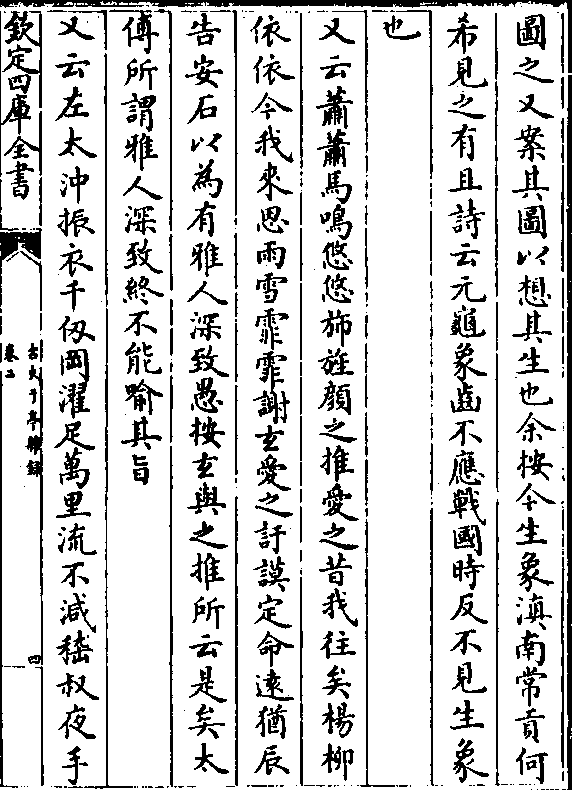 圖之又案其圖以想其生也余按今生象滇南常貢何
希見之有且詩云元龜象齒不應戰國時反不見生象
也
又云蕭蕭馬鳴悠悠斾旌顔之推愛之昔我往矣楊柳
依依今我來思雨雪霏霏謝玄愛之訏謨定命遠猶辰
告安石以為有雅人深致愚按玄與之推所云是矣太
傅所謂雅人深致終不能喻其旨
又云左太沖振衣千仞岡濯足萬里流不減嵇叔夜手
欽定四庫全書
卷二
四